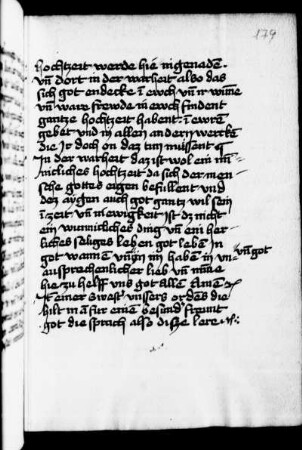 179
hochtzeit werde hie in genaden.
vn̄ dort in der warheit also das
sich got endecke ī ewch vn̄ ir wūne
vn̄ ware frewde in ewch findent
gantze hochtzeit habent. ī ewrē
gebet vnd in allen andern wercken
die Ir doch on daz tun müssent
In der warheit daz ist wol ein
liches hochtzeit da sich der men
sche gottes eigen befillent vnd
dez aÿgen auch got gantz wil sein
ī zeit vn̄ in ewigkeit Ist dz nicht
ein wunniclichs ding vn̄ ein her
liches seliges leben got leben In
got wonen vn̄ in haben in vn
vn̄ got
ausprechenlicher lieb vn̄ mīne
hie zu helff vns got allen Amen
It einer swest vnssers ordens die
hilt man für einen besund frewnt
got die sprach also dise lere